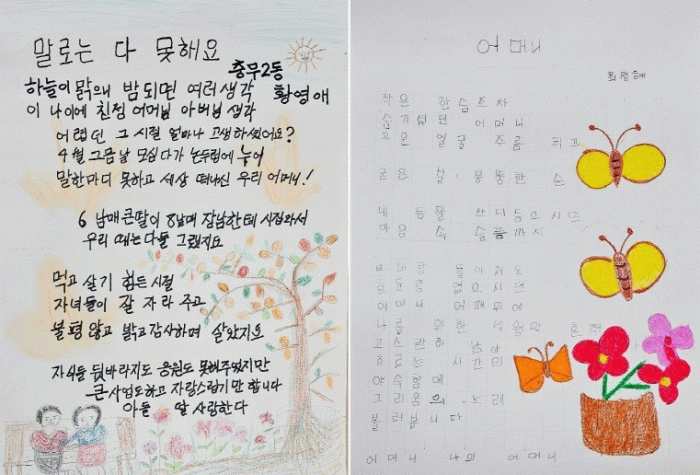 말로는 다 못해요
충무2동
황영애
하늘이 맑으네 밤되면 여러생각
이 나이에 친정 어머님 아버님 생각
어렵던 그 시절 얼마나 고생하셨어요?
4월 그믐날 모심다가 논두렁에 누어
말한마디 못하고 세상 떠나신 우리 어머니!
6 남매 큰딸이 8남매 장남한테 시집와서
우리 때는 다들 그랬지요
먹고 살기 힘든 시절
자녀들이 잘 자라 주고
불평않고 밝고감사하며 살았지요
자식들 뒷바라지도 응원도 못해주었지만
큰사업도하고 자랑스럽기만 합니다
아들 딸 사랑한다
어머니
작은 한숨조차
숨기셨던 어머니
고운 얼굴 주름 되고
굽은 손
내 등을
마음 속 슬픔까지
어머니
나를 위한 세월의 흔적
고스란히 남아
흐르는 시간의
야속함에
그리움의 노래
불러봅니다
어머니 나의 어머니